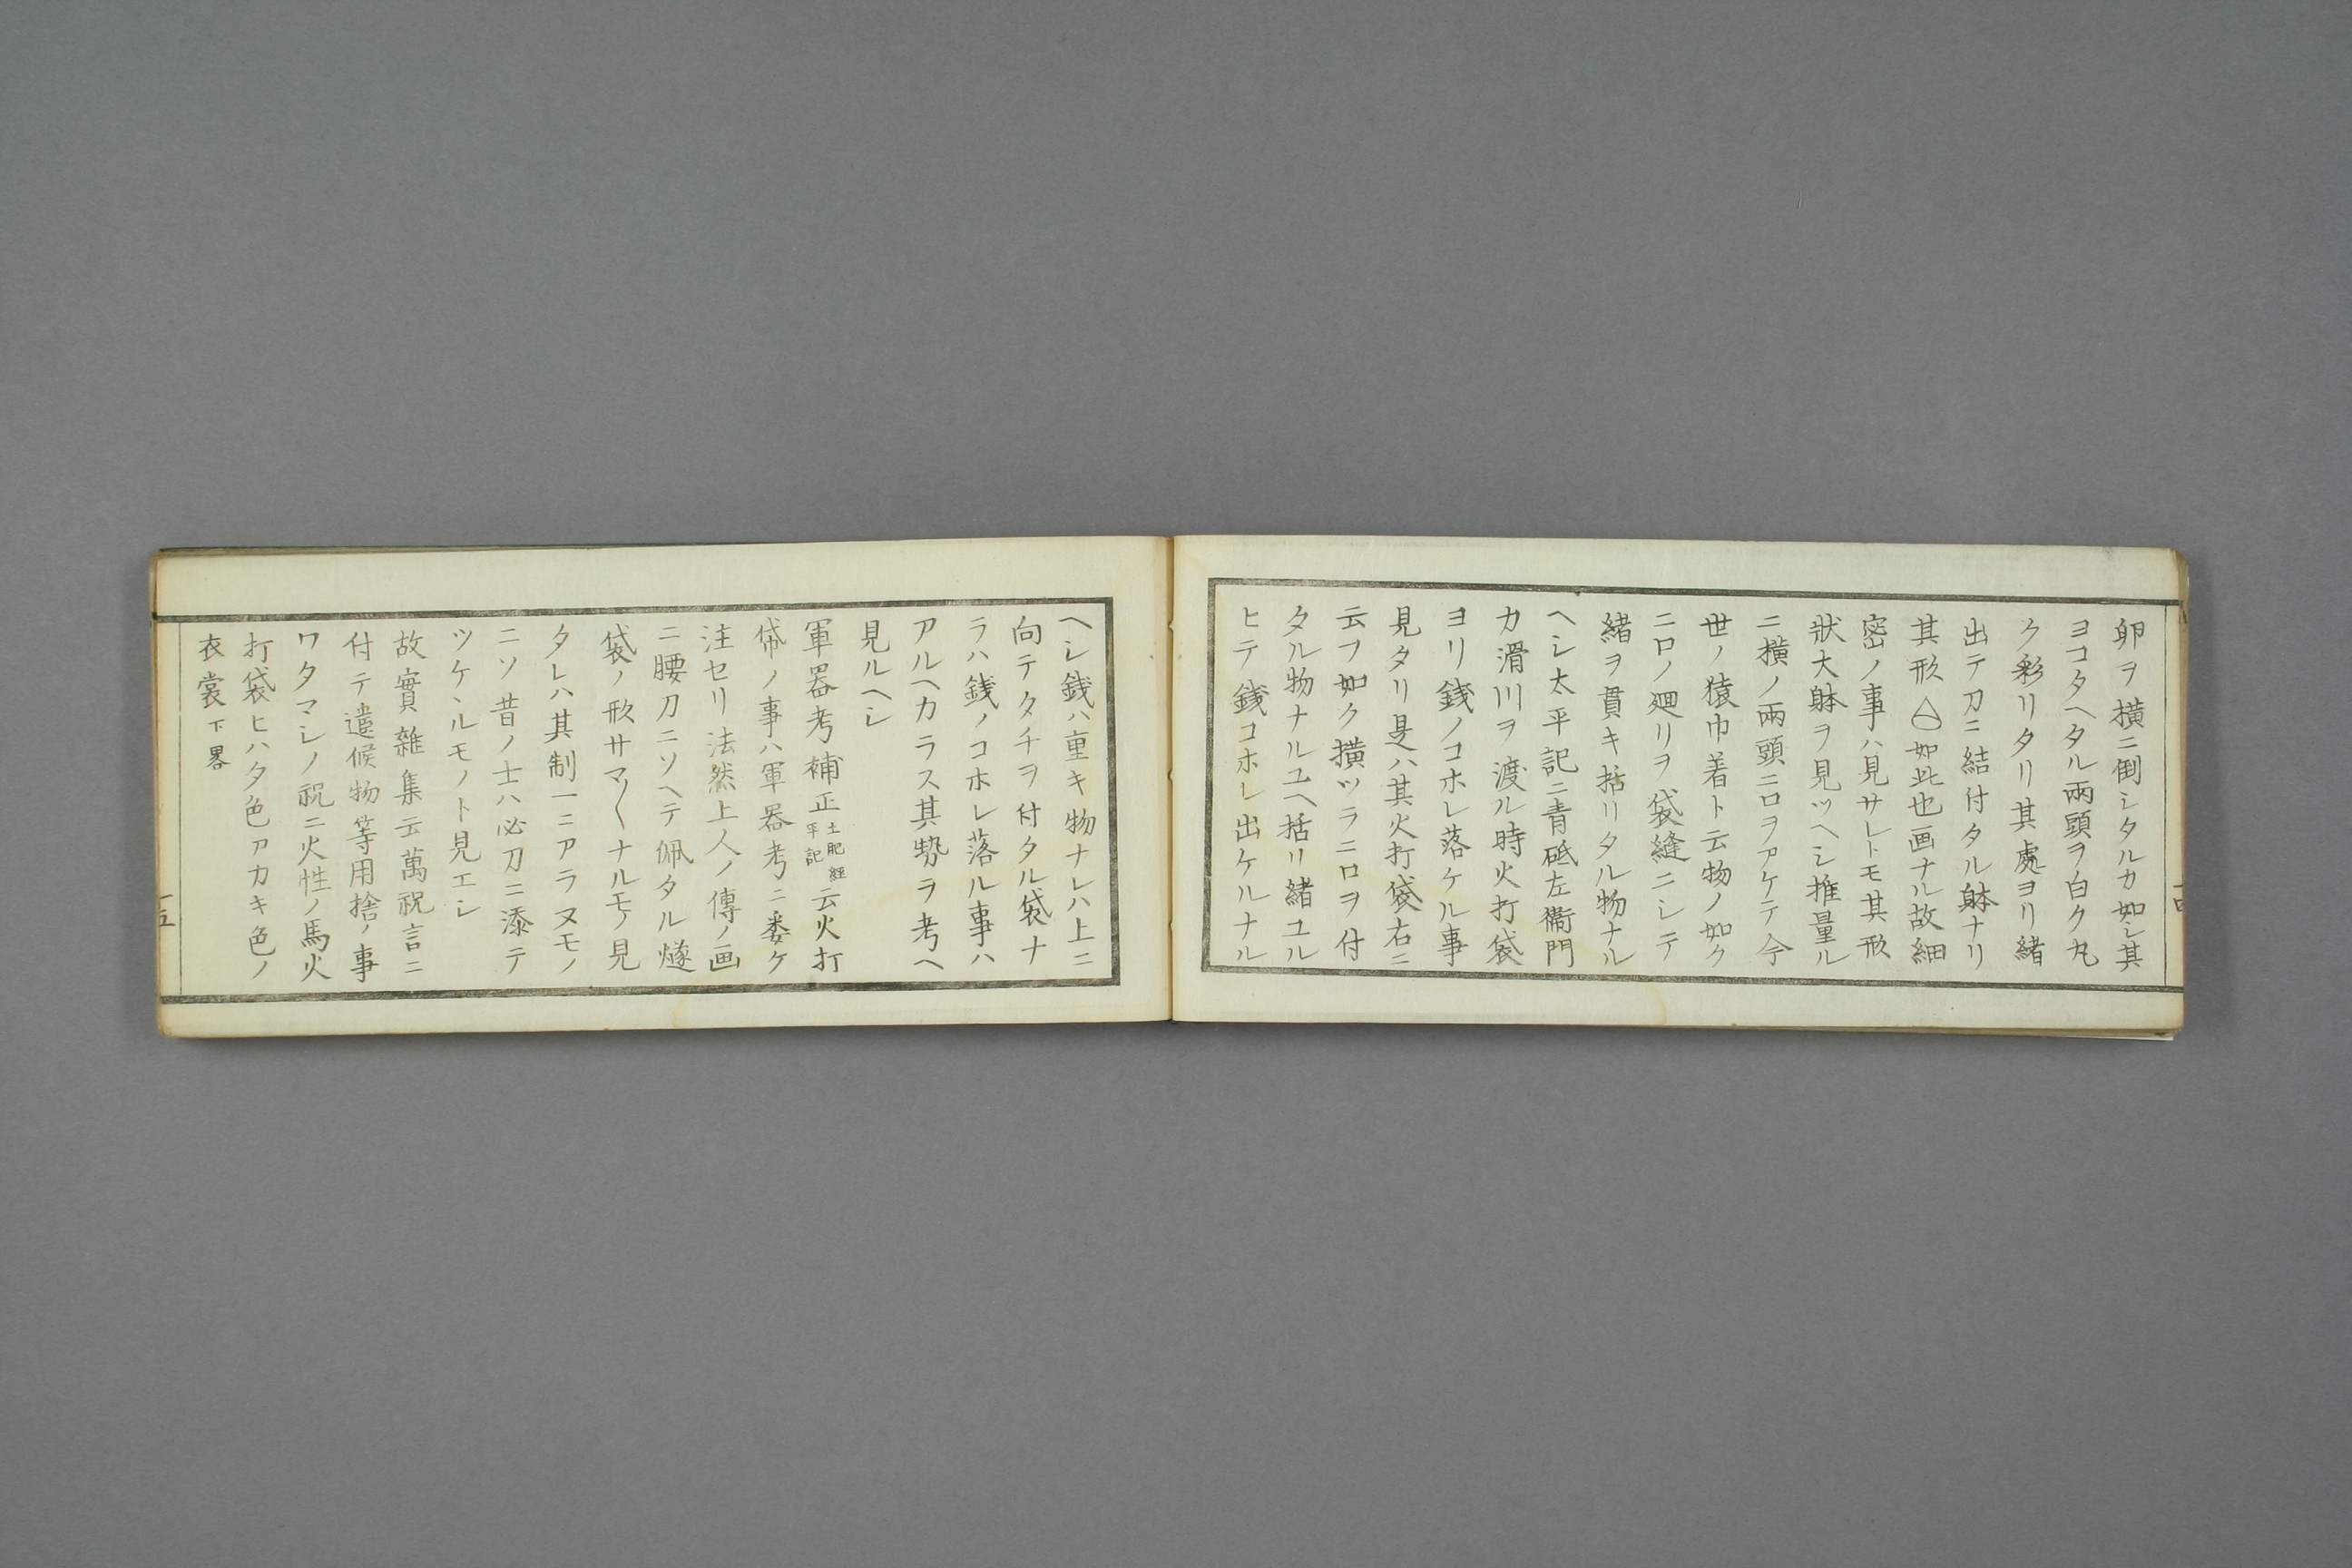 卵ヲ横ニ倒シタルカ如シ其
ヨコタヘタル兩頭ヲ白ク丸
ク彩リタリ其處ヨリ緒
出テ刀ニ結付タル躰ナリ
其形△如此也画ナル故細
密ノ事ハ見サレトモ其形
狀大躰ヲ見ツヘシ推量ル
ニ横ノ兩頭ニ口ヲアケテ今
世ノ猿巾着ト云物ノ如ク
ニ口ノ廻リヲ袋縫ニシテ
緒ヲ貫キ括リタル物ナル
ヘシ太平記ニ青砥左衛門
カ滑川ヲ渡ル時火打袋
ヨリ銭ノコホレ落ケル事
見タリ是ハ其火打袋右ニ
云フ如ク横ツラニ口ヲ付
タル物ナルユヘ括リ緒ユル
ヒテ銭コホレ出ケルナル
十四
ヘシ銭ハ重キ物ナレハ上ニ
向テタチヲ付タル袋ナ
ラハ銭ノコホレ落ル事ハ
アルヘカラス其勢ヲ考ヘ
見ルヘシ
軍器考補正土肥經平記云火打
袋ノ事ハ軍器考ニ委ケ
注セリ法然上人ノ傳ノ画
ニ腰刀ニソヘテ佩タル燧
袋ノ形サマ〱ナルモノ見
タレハ其制一ニアラヌモノ
ニソ昔ノ士ハ必刀ニ添テ
ツケヽルモノト見エシ
故實雜集云萬祝言ニ
付テ遣候物等用捨ノ事
ワタマシノ祝ニ火性ノ馬火
打袋ヒハタ色アカキ色ノ
衣裳下畧
十五